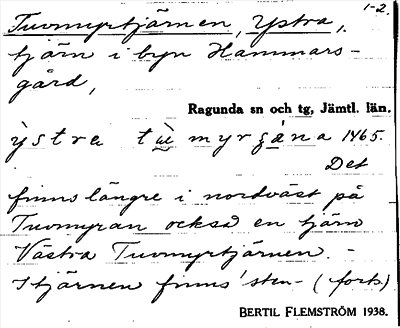 1-2.
Tuvmyrtjärnen, Ystra,
tjärn i byn Hammars-
gård,
Ragunda sn och tg, Jämtl. län.
ỳstra tu myrgána 1465.
Det
finns längre i nordväst på
Tuvmyran också en tjärn
Västra Tuvmyrtjärnen. -
I tjärnen finns 'sten- (forts)
BERTIL FLEMSTRÖM 1938.